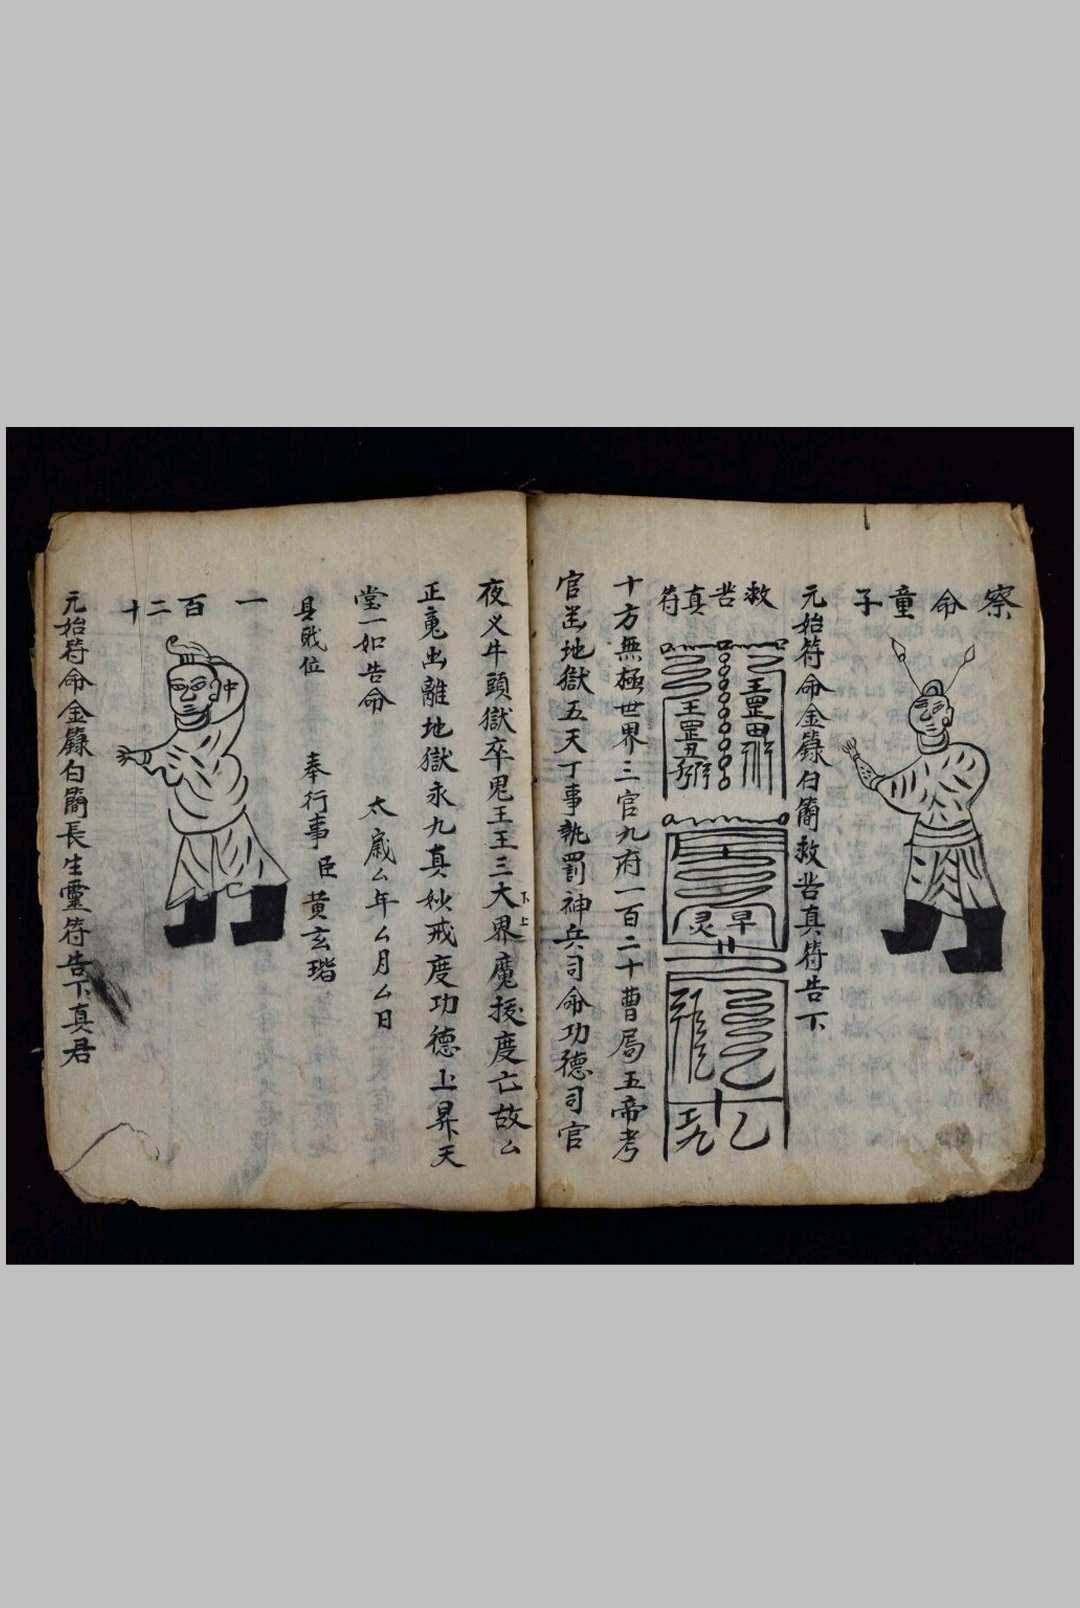 察命童子
元始符命金籙白簡救苦真符告下
救苦真符
十方無極世界三官九府一百二十曹局五帝考
官 地獄五天丁事執罰神兵司命功德司官
夜义牛頭獄卒鬼王王三大界魔
下上
度亡故厶
正 出離地獄永九真妙戒度功德上昇天
堂一如告命
太歲厶年厶月厶日
具 位 奉行事臣黄玄瑎
一百二十
元始符命金籙白簡長生靈符告下真君